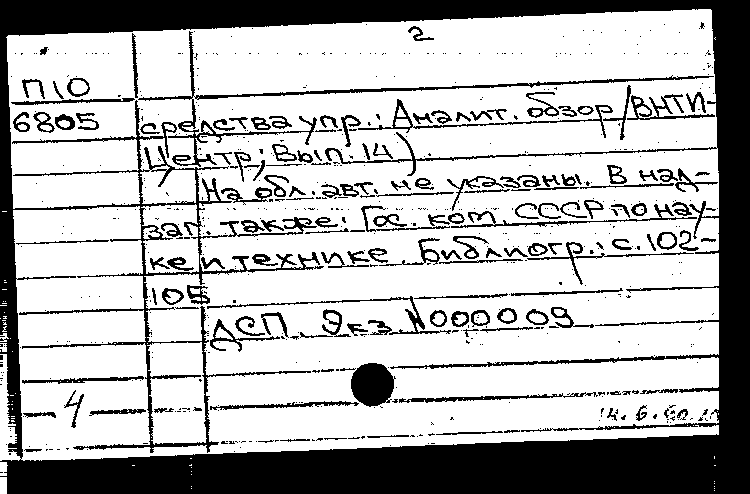 2
П10
6805
средства упр.: Аналит. обзор/ВНТИ-
Центр; Вып. 14).
На обл. авт. не указаны. В над-
заг. также: Гос. ком. СССР по нау-
ке и технике. Библиогр.: с. 102-
105.
ДСП. Экз. N000009
4